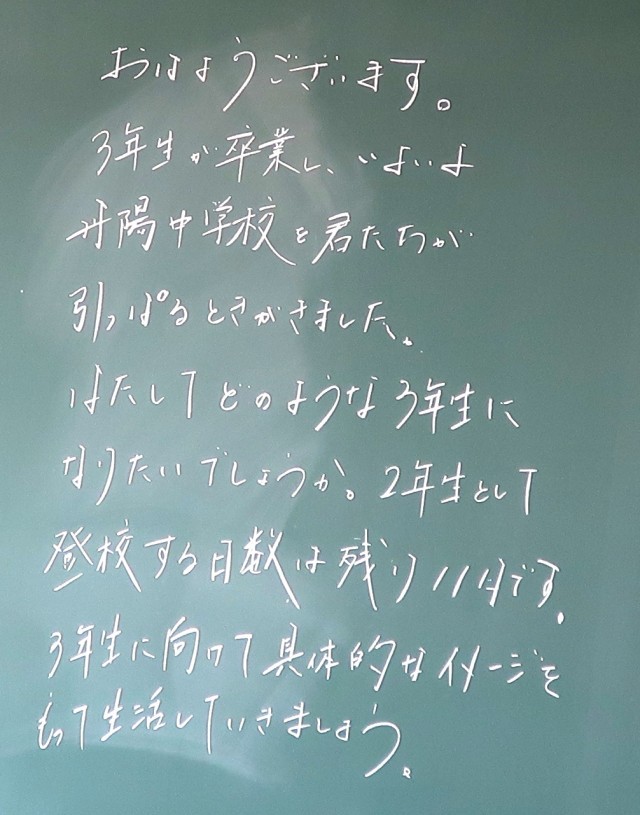 おはようございます。
3年生が卒業し、いよいよ
丹陽中学校を君たちが
引っぱるときがきました。
はたしてどのような3年生に
なりたいでしょうか。2年生として
登校する日数は残り11日です。
3年生に向けて具体的なイメージを
もって生活していきましょう。